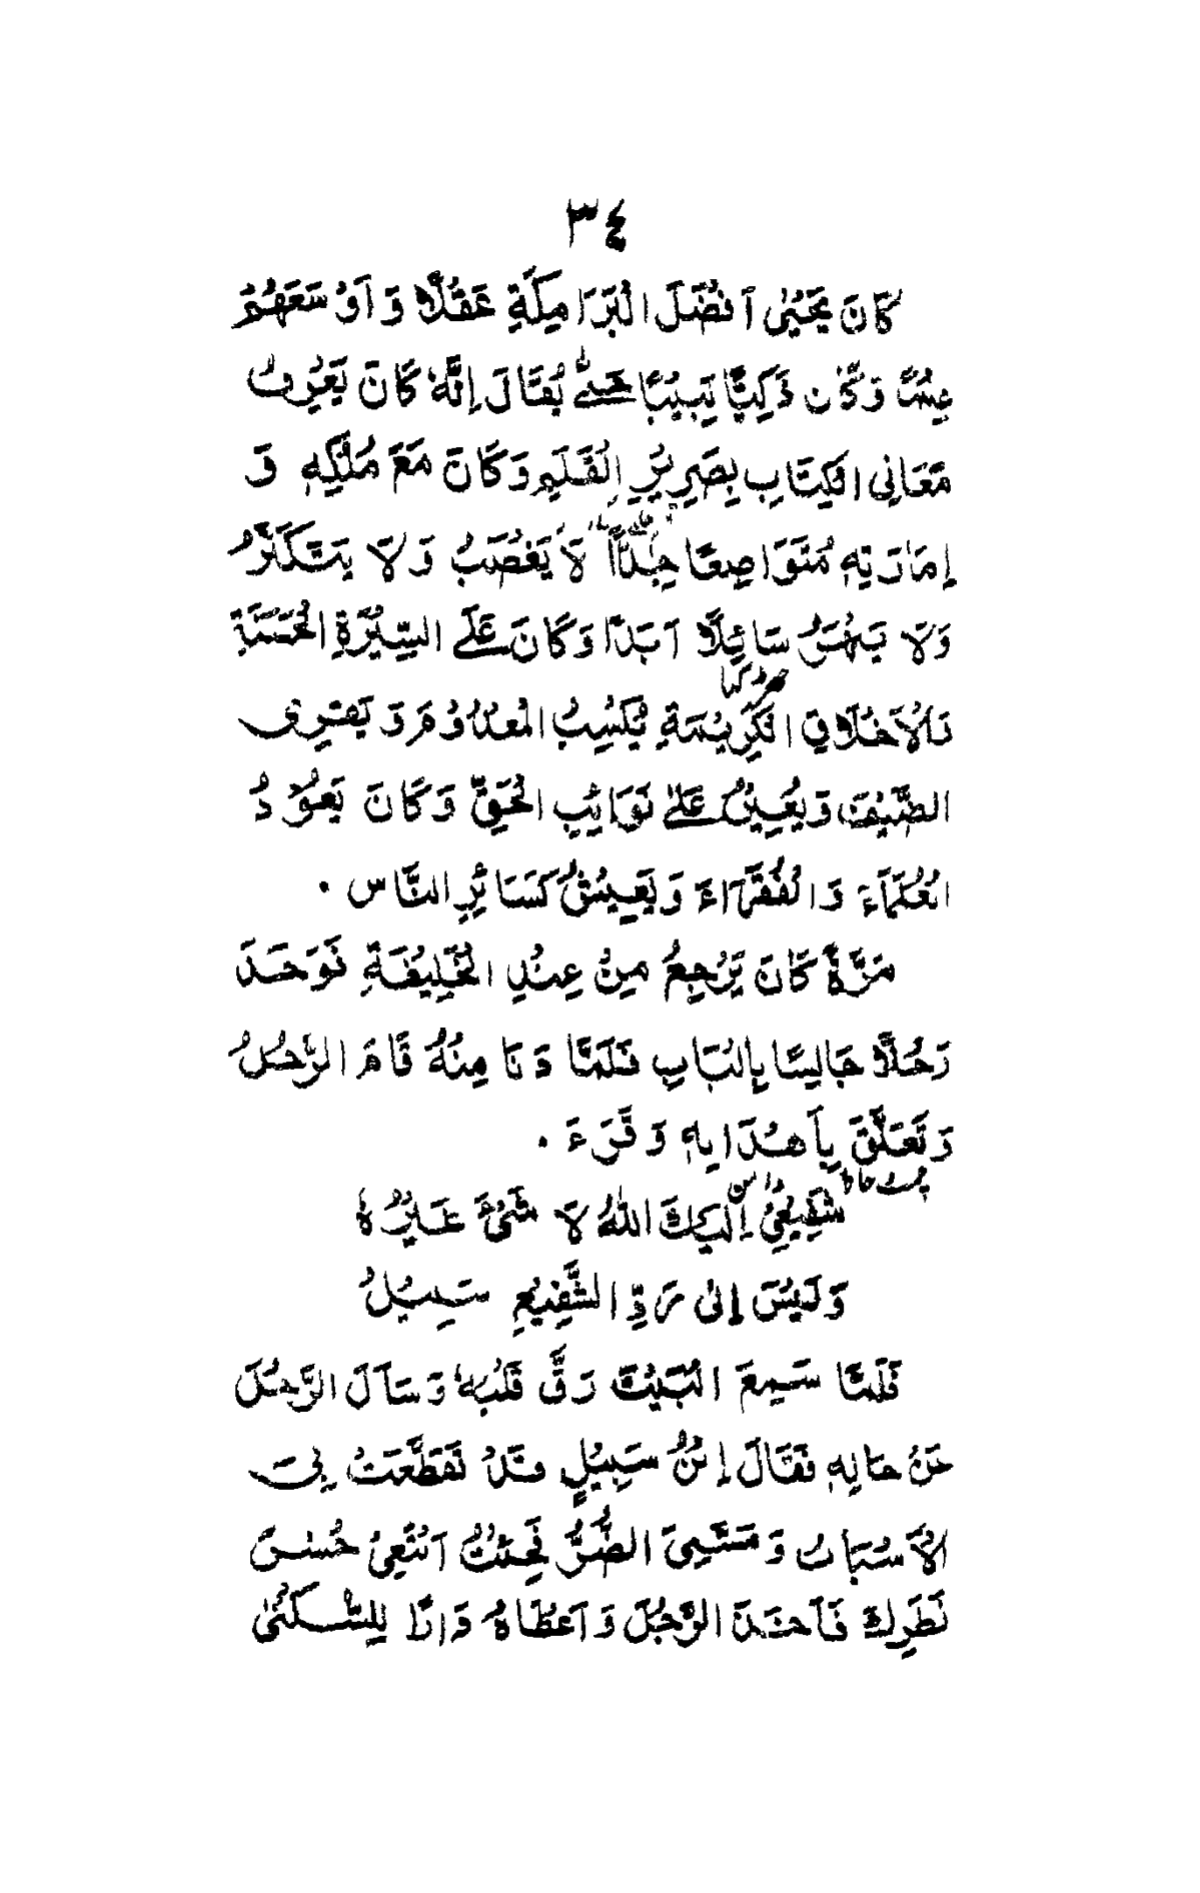 ٣٤
كَانَ يَحْيٰى اَفْضَلَ الْبَرَامِكَةِ عَقْلًا وَ اَوْسَعَهُمْ
عِلْمًا وَكَان ذَكِيًّا لَبِيْبًا حَتّٰى يُقَالَ اِنَّهٗ كَانَ يَعْرِفُ
مَعَانِى الْكِتَابِ بِصَرِيْرِ الْقَلَمِ وَكَانَ مَعَ مُلْكِهٖ وَ
اِمَارَتِهٖ مُتَوَاضِعًا جِدًّا لَا يَغْضَبُ وَلَا يَتَكَبَّرُ
وَلَا يَنْهَرُ سَائِلًا اَبَدًا وَكَانَ عَلَى السِّيْرَةِ الْحَسَنَةِ
وَالْاَخْلَاقِ الْكَرِيْمَةِ يَكْسِبُ الْمَعْدُوْمَ وَ يَقْرِى
الضَّيْفَ وَيُعِيْنُ عَلٰى نَوَائِبِ الْحَقِّ وَكَانَ يَعُوْدُ
الْعُلَمَآءَ وَالْفُقَرَآءَ وَيَعِيْشُ كَسَائِرِ النَّاس ۰
مَرَّةً كَانَ يَرْجِعُ مِنْ عِنْدِ الْخَلِيْفَةِ فَوَجَدَ
رَجُلًا جَالِسًا بِالْبَابِ فَلَمَّا دَنَا مِنْهُ قَامَ الرَّجُلُ
وَتَعَلَّقَ بِاَهْدَابِهٖ وَقَرَءَ ۰
شَفِيْعِيْ اِلَيْكَ اللهُ لَا شَيْءَ غَيْرُهٗ
وَلَيْسَ اِلٰى رَدِّ الشَّفِيْعِ سَبِيْلُ
فَلَمَّا سَمِعَ الْبَيْتَ رَقَّ قَلْبُهٗ وَسَاَلَ الرَّجُلَ
عَنْ حَالِهٖ فَقَالَ اِبْنُ سَبِيْلٍ قَدْ تَقَطَّعَتْ بِىَ
الْاَسْبَابُ وَمَسَّنِىَ الضُّرُّ فَجِئْتُ اَبْتَغِىْ حُسْنَ
نَظَرِكَ فَاَخَذَ الرَّجُلَ وَاَعْطَاهُ دَارًا لِلسُّكْنٰى